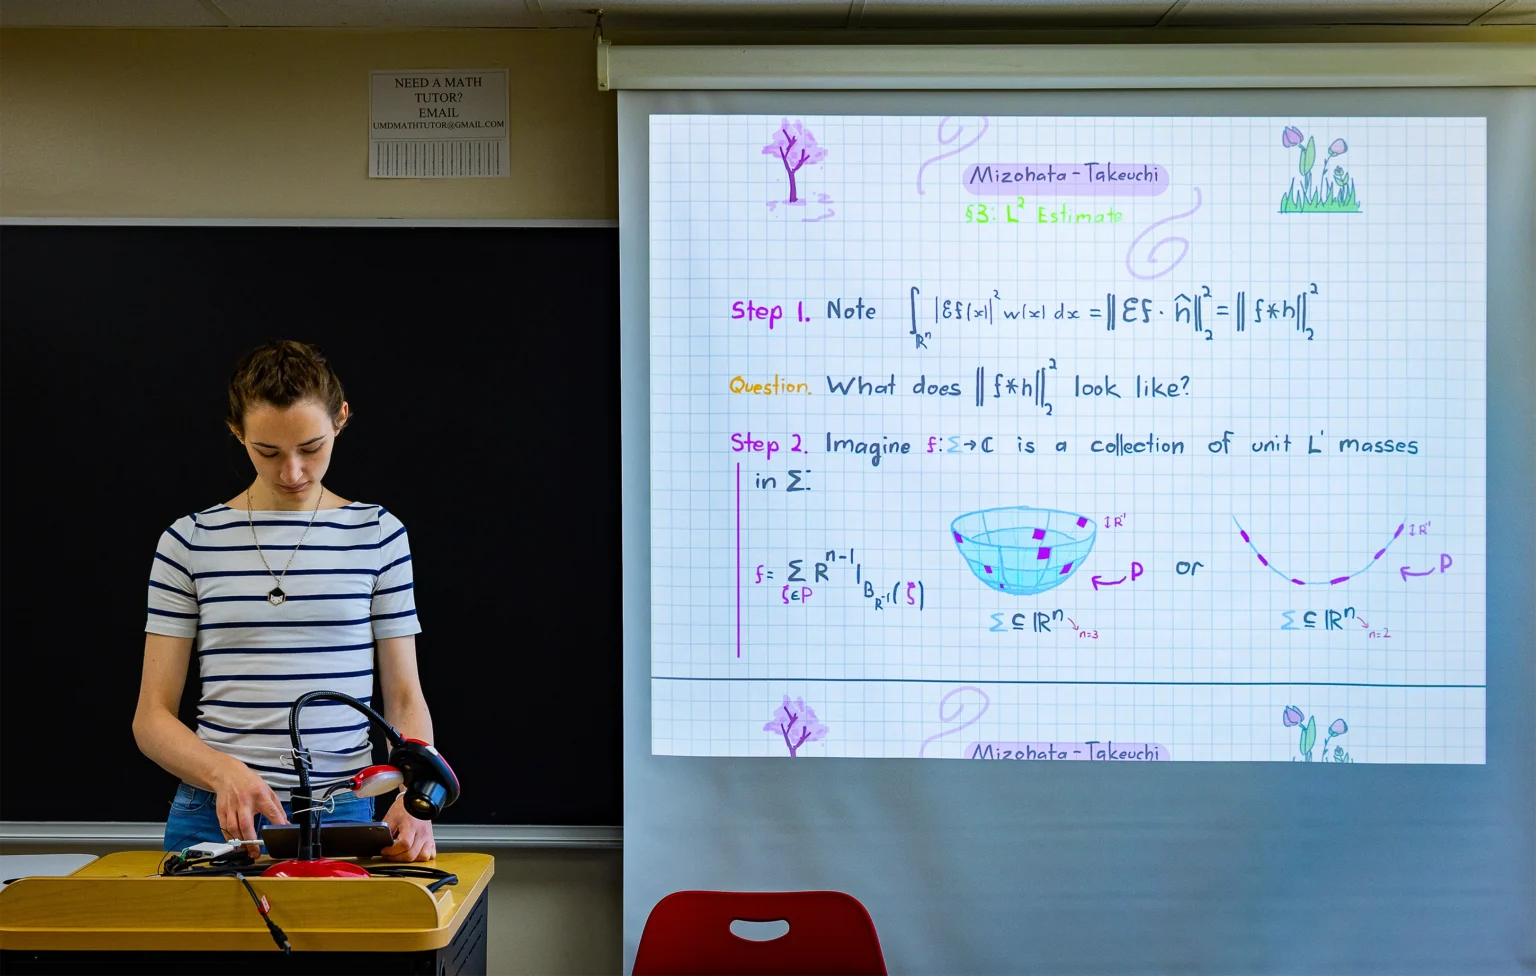 NEED A MATH
TUTOR?
EMAIL
UMDMATHTUTOR@GMAIL.COM
Mizohata-Takeuchi
§3: L² Estimate
Step 1. Note ∫_{ℝⁿ} |Ef(x)|² w(x) dx = ‖Ef · ĥ‖₂² = ‖f*h‖₂²
Question. What does ‖f*h‖₂² look like?
Step 2. Imagine f: Σ → ℂ is a collection of unit L¹ masses
in Σ:
f = Σ_{ζ∈P} R^{n-1} 1_{B_{R⁻¹}(ζ)}
↕R⁻¹
P
Σ ⊆ ℝⁿ
n=3
or
↕R⁻¹
P
Σ ⊆ ℝⁿ
n=2
Mizohata-Takeuchi